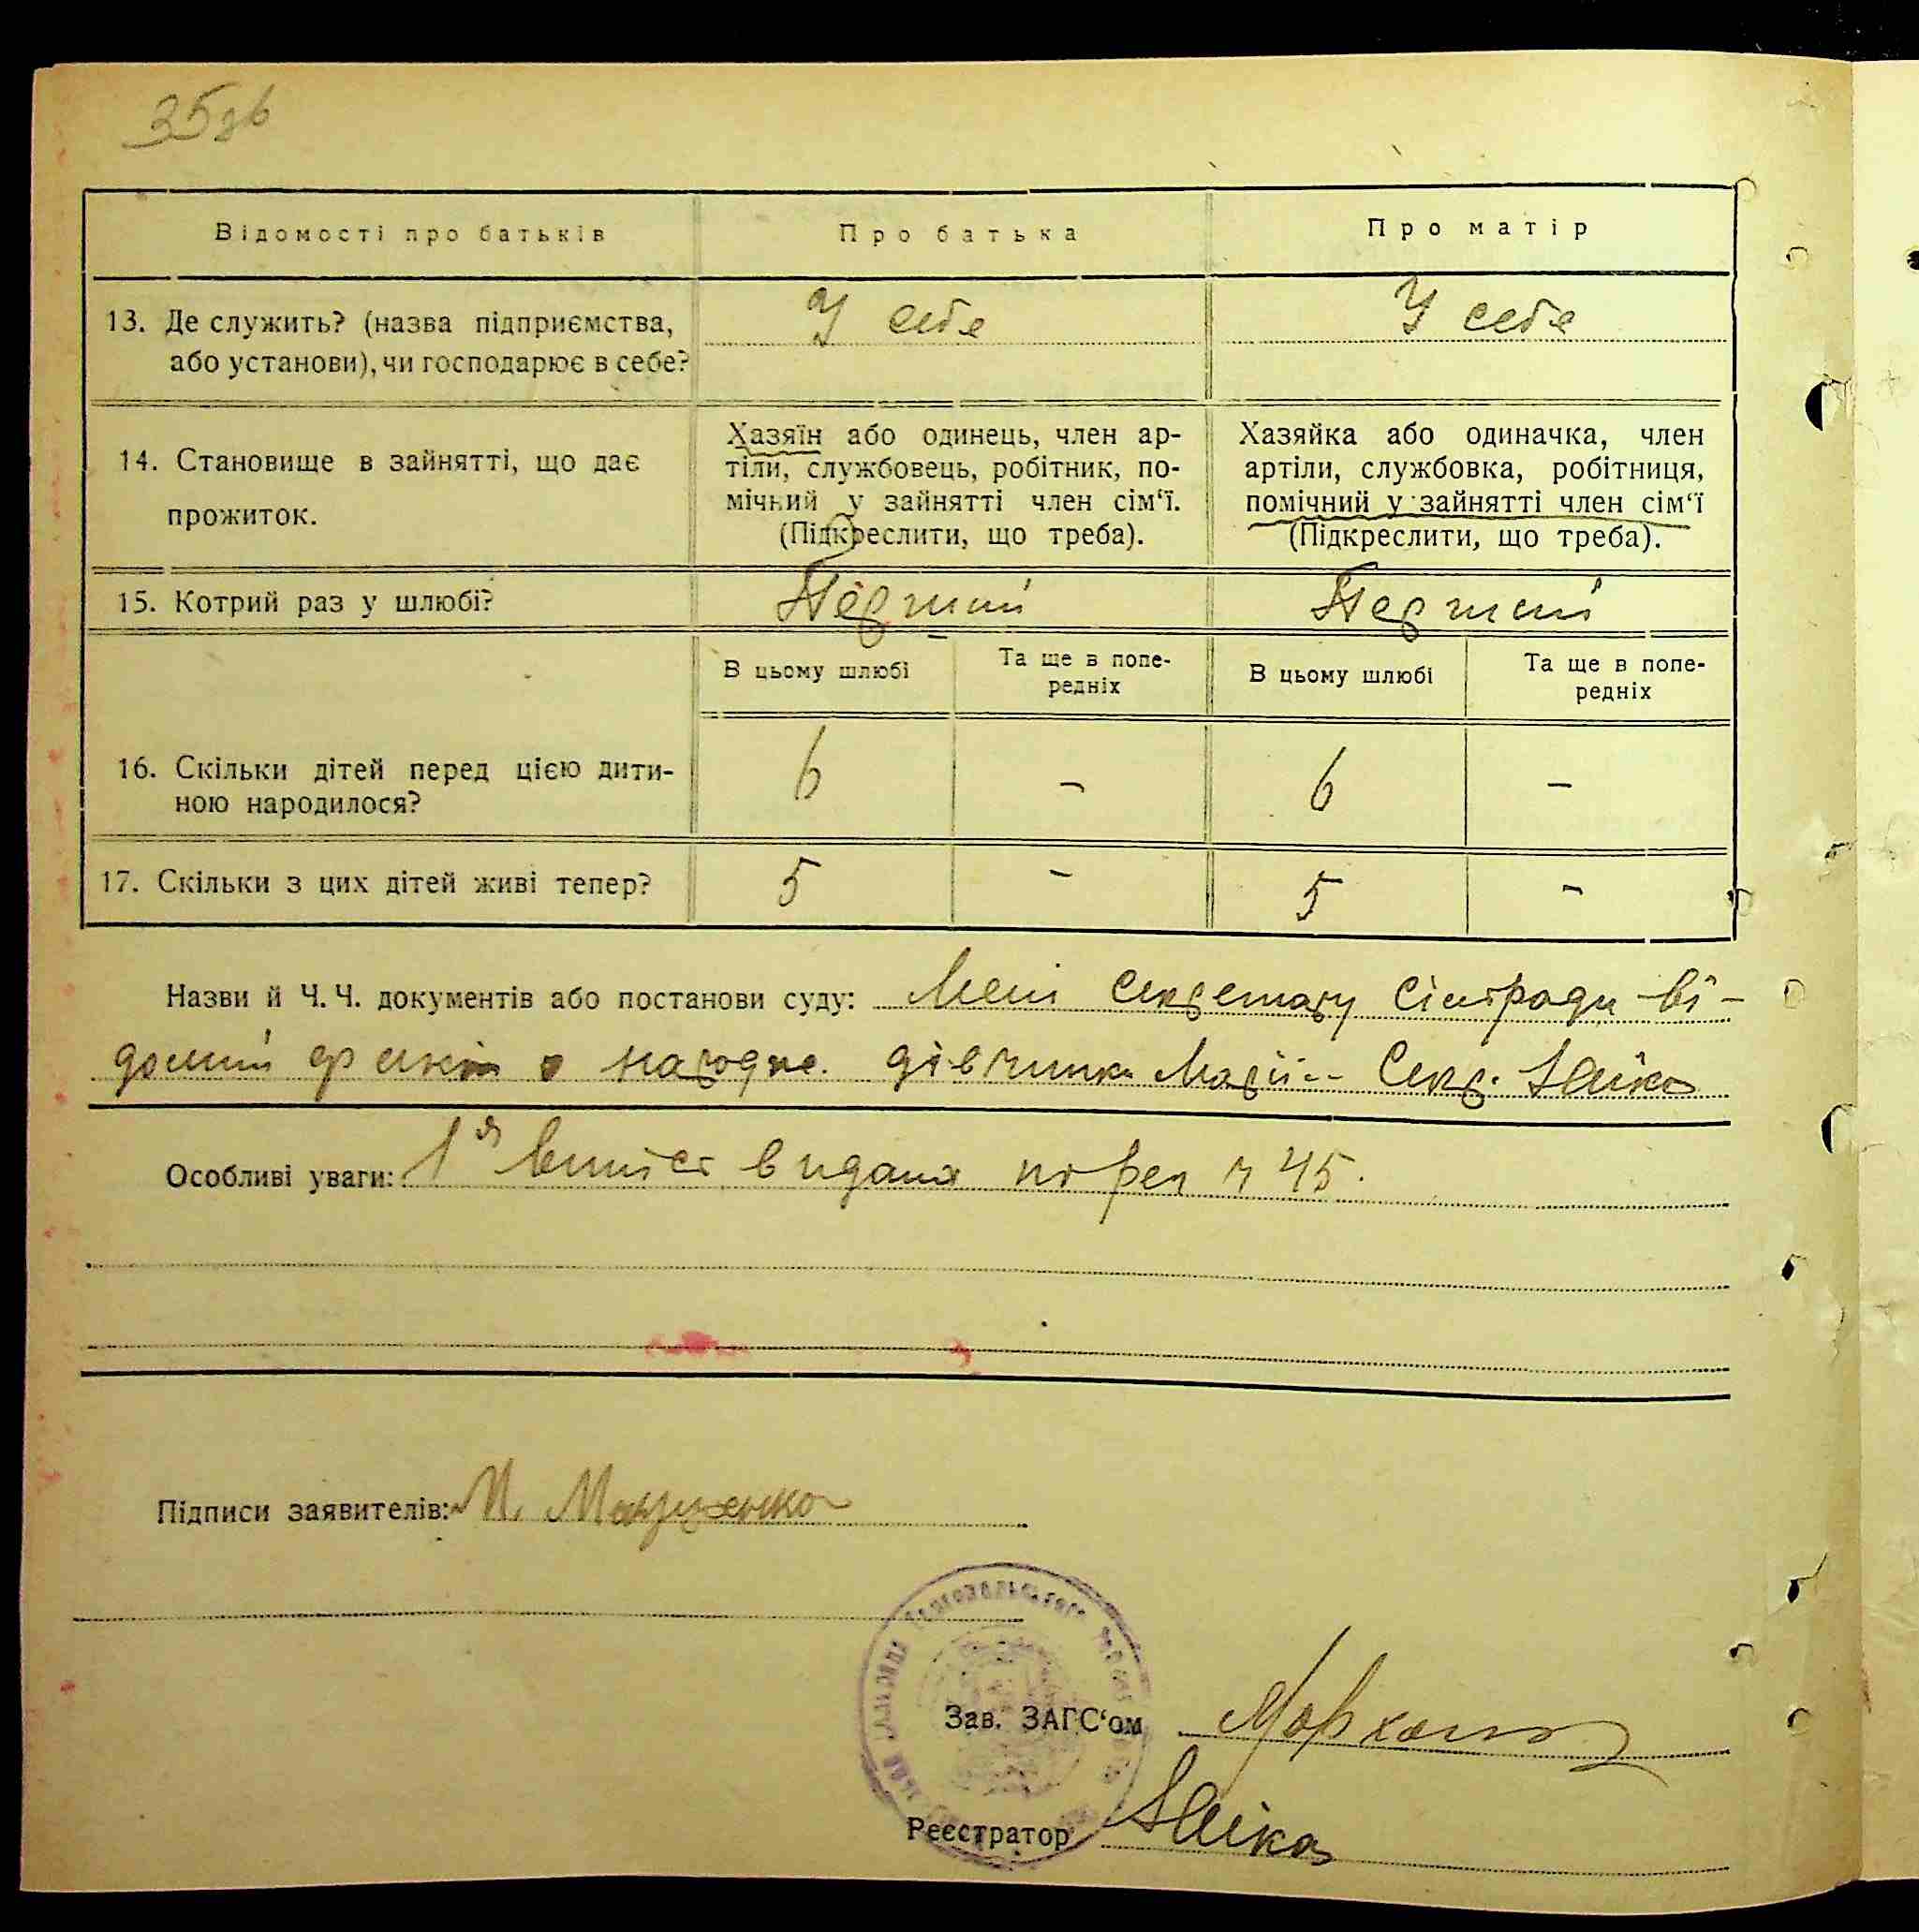 35зв
Відомості про батьків
Про батька
Про матір
13. Де служить? (назва підприємства,
або установи), чи господарює в себе?
У себе
У себе
14. Становище в зайнятті, що дає
прожиток.
Хазяїн або одинець, член ар-
тіли, службовець, робітник, по-
мічний у зайнятті член сім‘ї.
(Підкреслити, що треба).
Хазяйка або одиначка, член
артіли, службовка, робітниця,
помічний у зайнятті член сім‘ї
(Підкреслити, що треба).
15. Котрий раз у шлюбі?
Перший
Перший
В цьому шлюбі
Та ще в попе-
редніх
В цьому шлюбі
Та ще в попе-
редніх
16. Скільки дітей перед цією дити-
ною народилося?
6
–
6
–
17. Скільки з цих дітей живі тепер?
5
–
5
–
Назви й Ч. Ч. документів або постанови суду: Мені секретару Сільради ві-
домий факт народже. дівчинки Марії -- Секр.
Особливі уваги: 1а випись видана по реп ч 45.
Підписи заявителів:
Зав. ЗАГС‘ом
Реєстратор